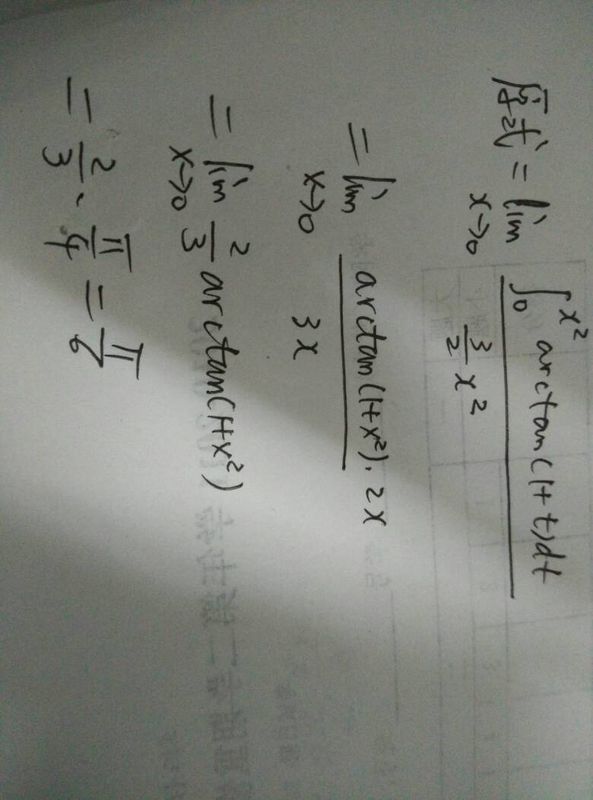 原式 = lim x→0 ∫₀^{x²} arctan(1+t)dt / (3/2 x²)
= lim x→0 arctan(1+x²)·2x / 3x
= lim x→0 2/3 arctan(1+x²)
= 2/3 · π/4 = π/6